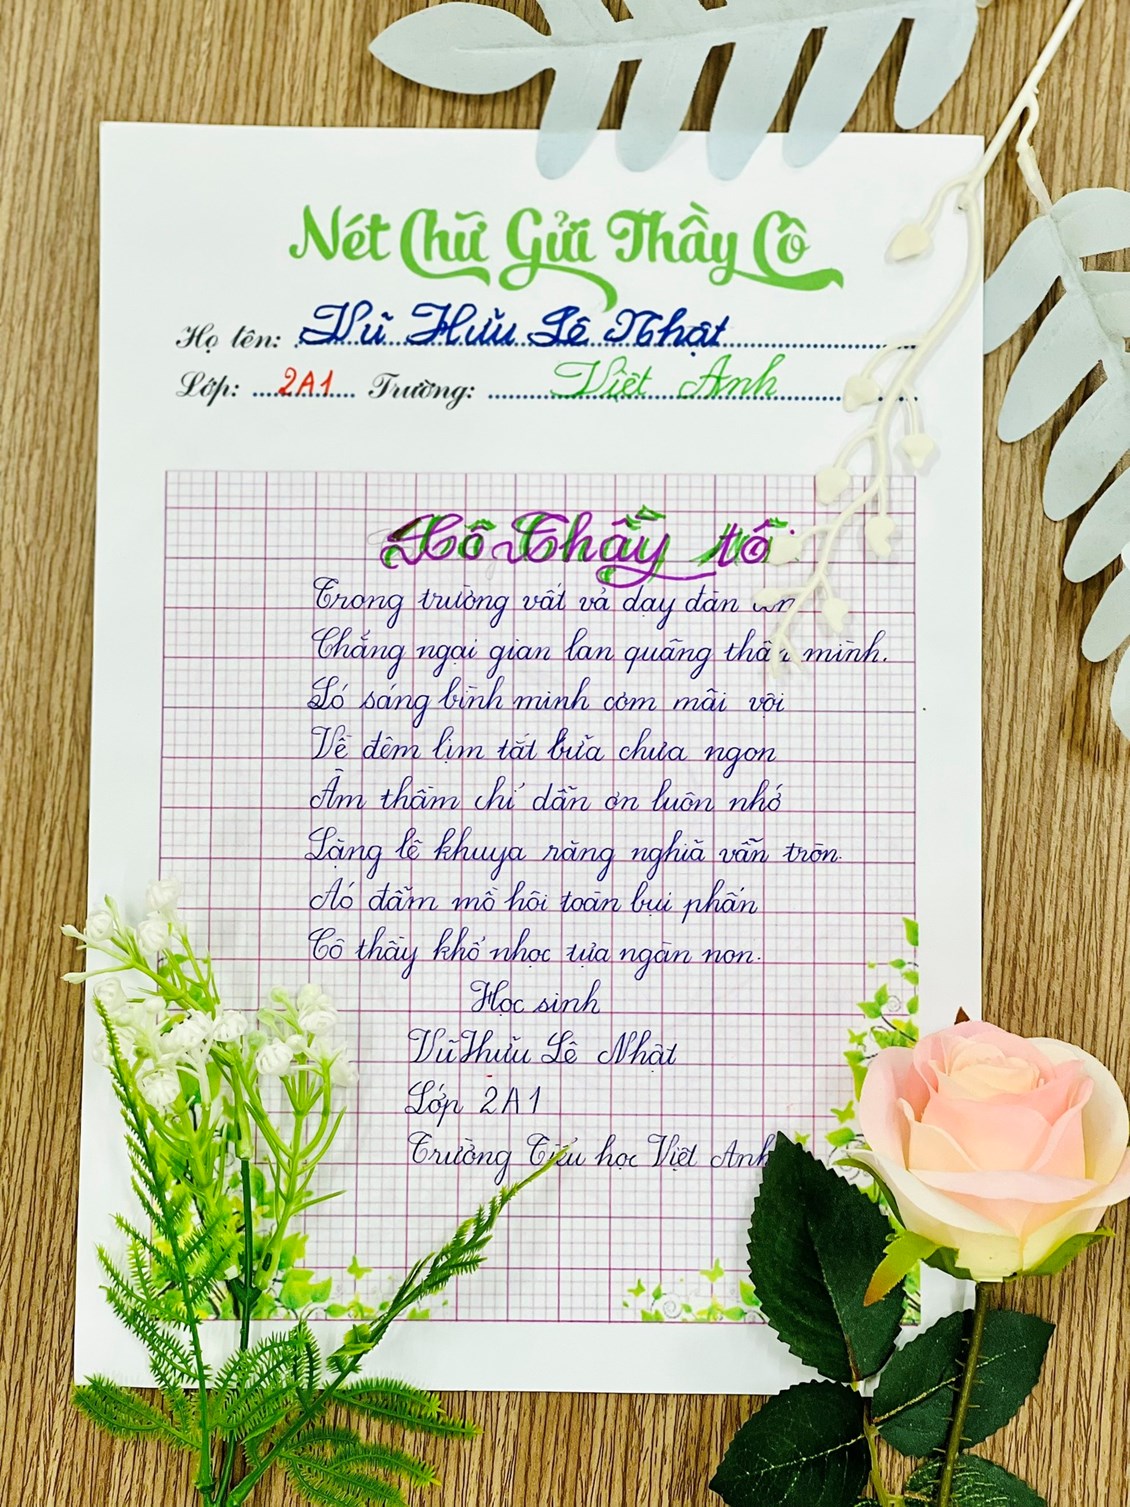 Nét Chữ Gửi Thầy Cô
Họ tên: Vũ Hữu Lê Nhật
Lớp: 2A1 Trường: Việt Anh
Cô Thầy tô
Trong trường vất vả dạy đàn
Chẳng ngại gian lan quãng thân mình.
Ló sáng bình minh cơm mãi vội
Về đêm lịm tắt bữa chưa ngon
Âm thầm chỉ dẫn ơn luôn nhớ
Lặng lẽ khuya răng nghĩa vẫn tròn.
Áo đẫm mồ hôi toàn bụi phấn
Cô thầy khổ nhọc tựa ngàn non.
Học sinh
Vũ Hữu Lê Nhật
Lớp 2A1
Trường Tiểu học Việt Anh